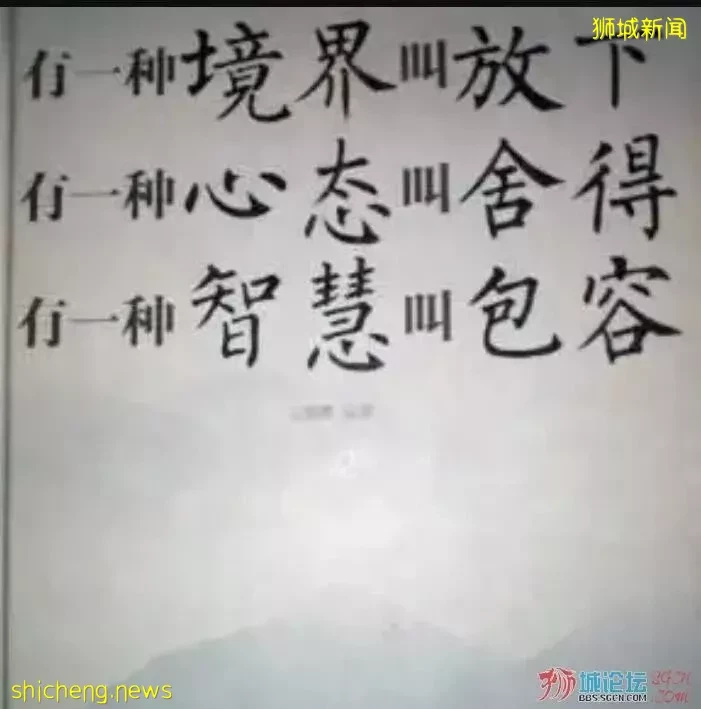 狮城新闻
有一种境界叫放下
有一种心态叫舍得
有一种智慧叫包容
shicheng.news
狮城论坛
BBS.SGCN.COM
SGCN
.COM